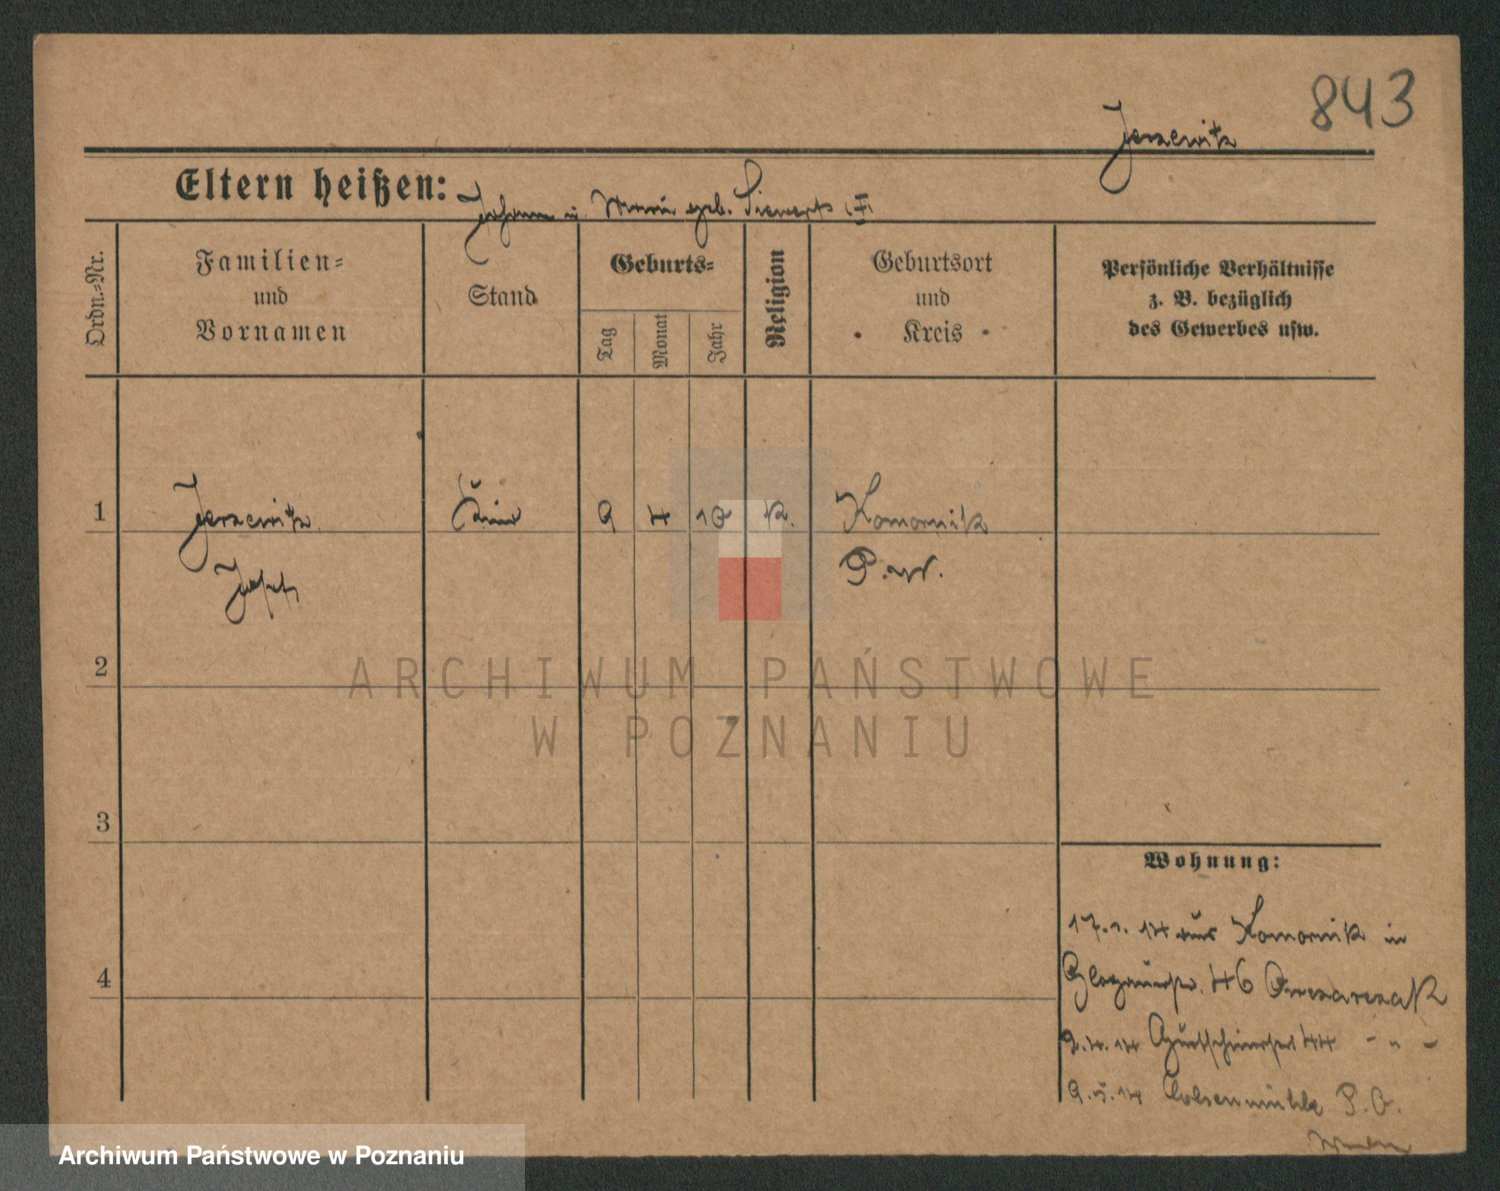 843
Jerzewitz
Eltern heißen: Johann u. Maria geb. Siewerts
Ordn.=Nr.
Familien=
und
Vornamen
Stand
Geburts=
Tag
Monat
Jahr
Religion
Geburtsort
und
Kreis
Persönliche Verhältnisse
z. B. bezüglich
des Gewerbes usw.
1
Jerzewitz
Kind
9
4
10
k.
Komornik
Josef
P.W.
2
ARCHIWUM PAŃSTWOWE
W POZNANIU
3
Wohnung:
17. 1. 14 aus Komornik in
4
Glogauerstr. 46 Owczarczak
2.4.14 Gurtschinerstr 44 - " -
9.5.14 Kolsenmühle P.O.
Archiwum Państwowe w Poznaniu